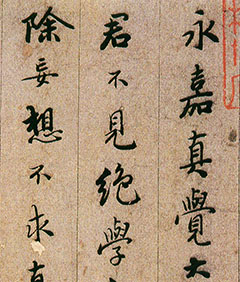 永嘉真覺大
君不見絕學
除妄想不求真